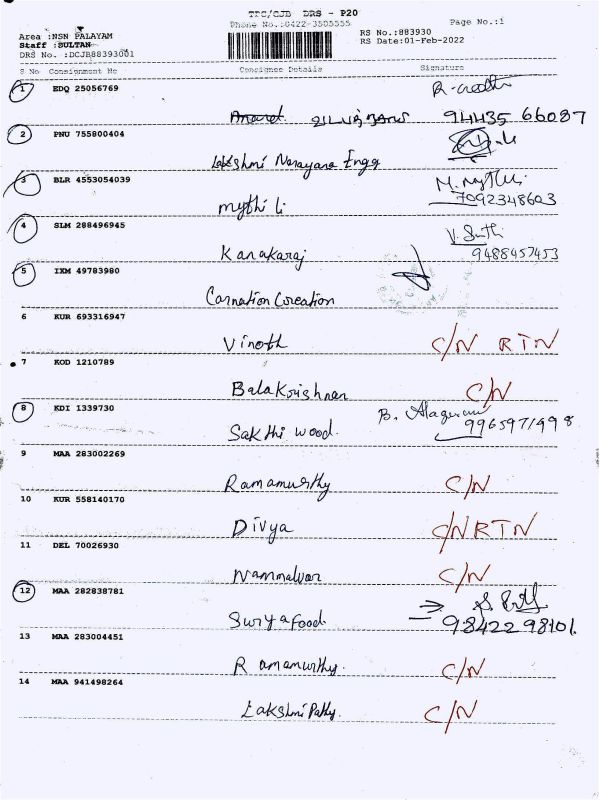 TPC/CJB DRS - P20
Phone No.:0422-3505555
Page No.:1
Area :NSN PALAYAM
Staff :SULTAN
DRS No. :DCJB88393001
RS No.:883930
RS Date:01-Feb-2022
S No Consignment No Consignee Details Signature
1 EDQ 25056769
Anand 94435 66087
2 PNU 755800404
Lakshmi Narayana Engg
3 BLR 4553054039
M. Mythili
mythili 7092348603
4 SLM 288496945
V. Sruthi
Kanakaraj 9488457453
5 IXM 49783980
Carnation Coreation
6 KUR 693316947
Vinoth C/N RTN
7 KOD 1210789
Balakrishnan C/N
8 KDI 1339730
B. Alagesan
Sakthi wood. 9965971998
9 MAA 283002269
Ramamurthy C/N
10 KUR 558140170
Divya C/N RTN
11 DEL 70026930
Nammalvar C/N
12 MAA 282838781
Surya food. 98422 98101.
13 MAA 283004451
Ramamurthy. C/N
14 MAA 941498264
Lakshmi Pathy. C/N